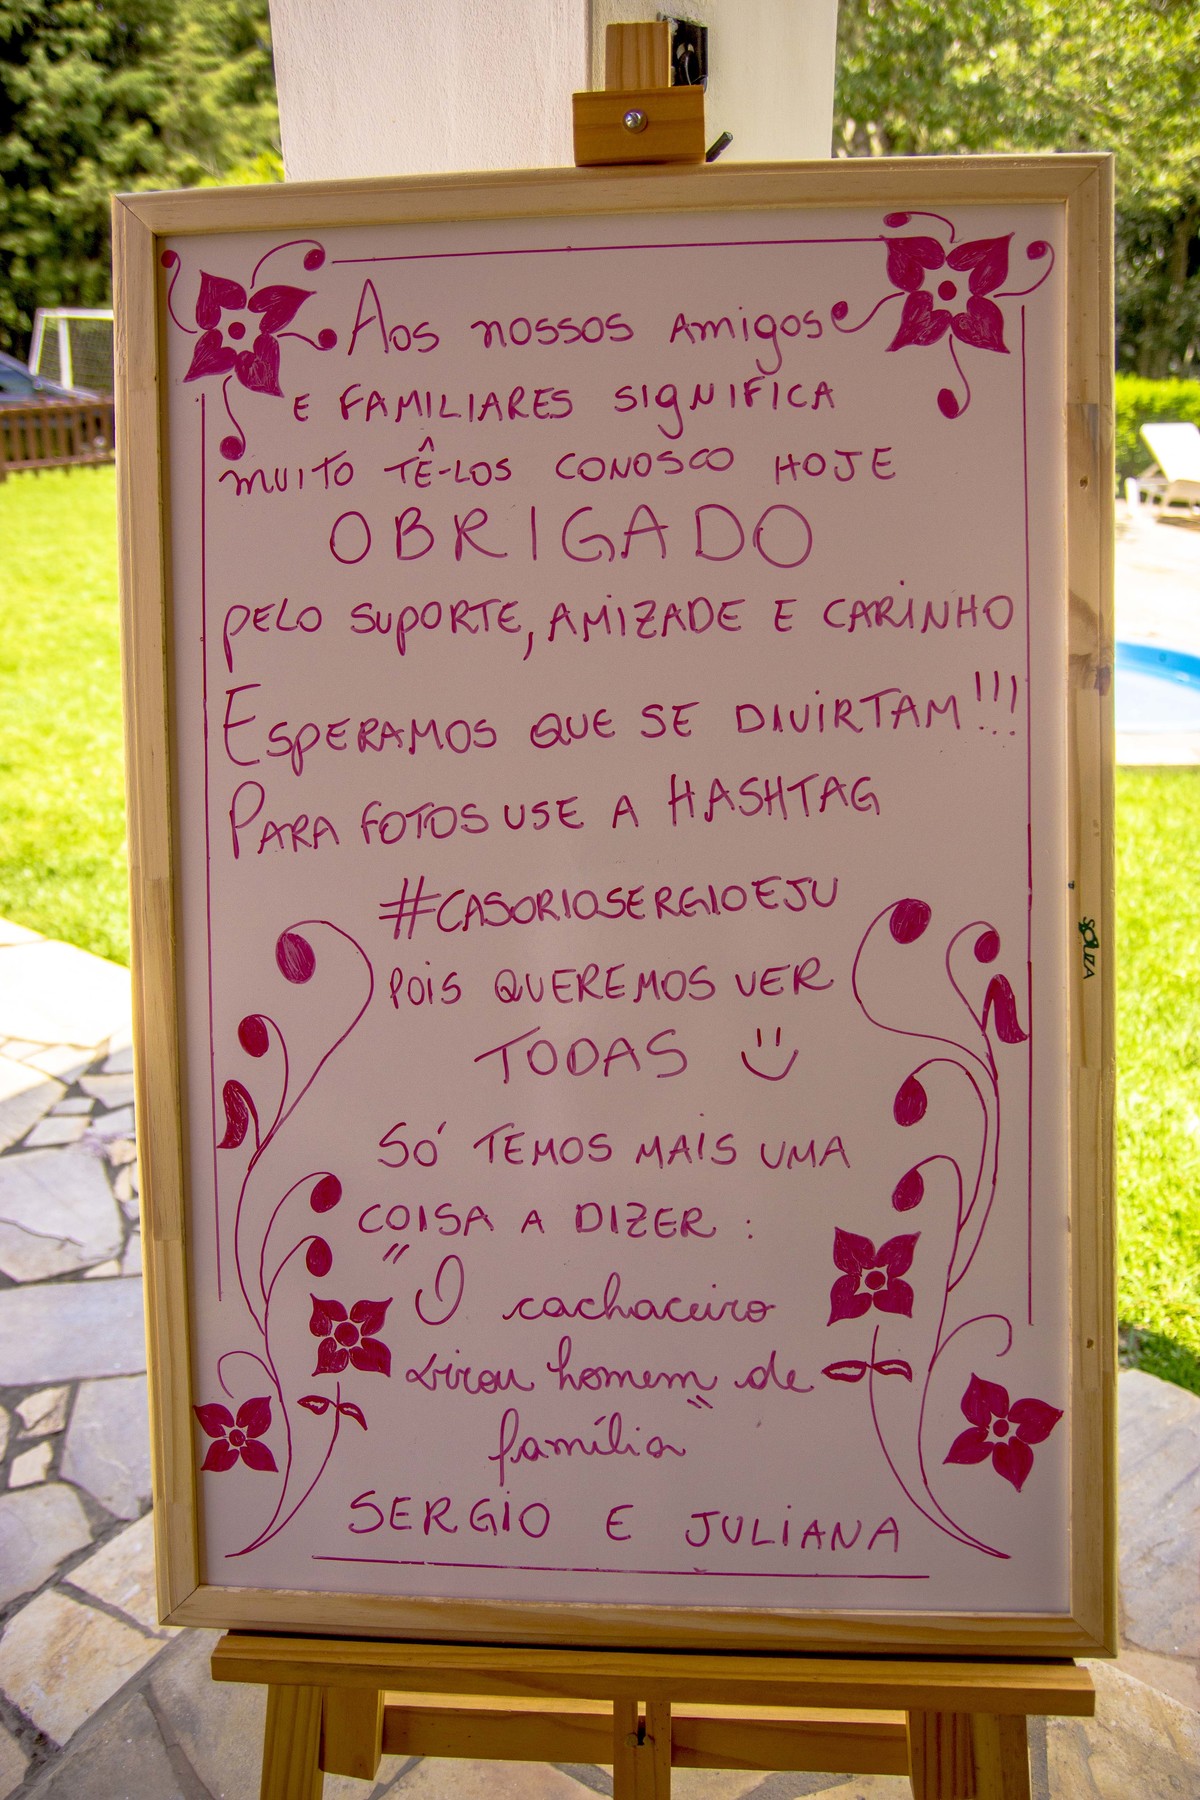 Aos nossos amigos
E FAMILIARES SIGNIFICA
MUITO TÊ-LOS CONOSCO HOJE
OBRIGADO
PELO SUPORTE, AMIZADE E CARINHO
ESPERAMOS QUE SE DIVIRTAM!!!
PARA FOTOS USE A HASHTAG
#CASORIOSERGIOEJU
POIS QUEREMOS VER
TODAS
SÓ TEMOS MAIS UMA
COISA A DIZER:
"O cachaceiro
virou homem de
família"
SERGIO E JULIANA
SOUZA